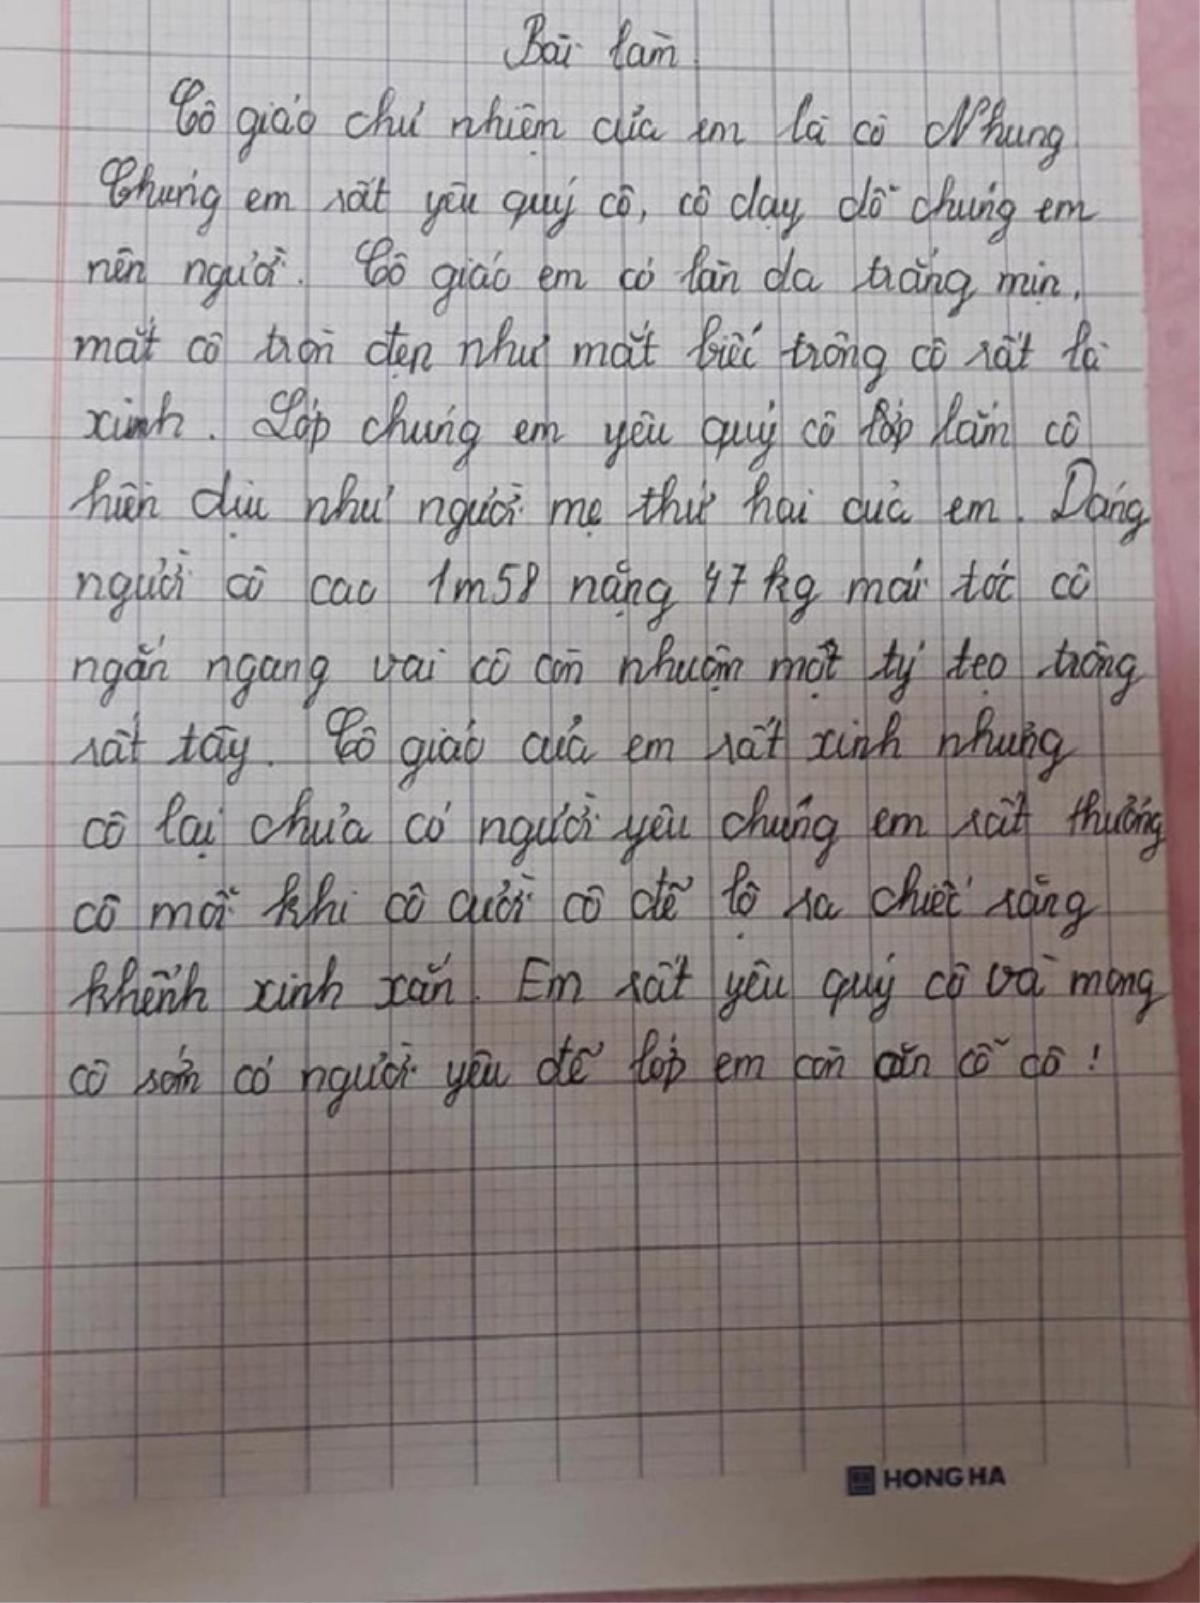 Bài làm
Cô giáo chủ nhiệm của em là cô Nhung
Chúng em rất yêu quý cô, cô dạy dỗ chúng em
nên người. Cô giáo em có làn da trắng mịn,
mắt cô tròn đẹp như mắt biếc trông cô rất là
xinh. Lớp chúng em yêu quý cô lớp lắm cô
hiền dịu như người mẹ thứ hai của em. Dáng
người cô cao 1m58 nặng 47 kg mái tóc cô
ngắn ngang vai cô còn nhuộm một tý tẹo trông
rất tây. Cô giáo của em rất xinh nhưng
cô lại chưa có người yêu chúng em rất thương
cô mỗi khi cô cười cô để lộ ra chiếc răng
khểnh xinh xắn. Em rất yêu quý cô và mong
cô sớm có người yêu để lớp em còn ăn cỗ cô!
HONG HA